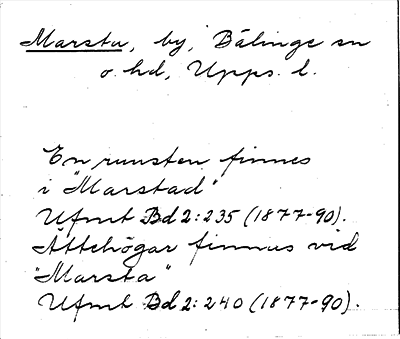 Marsta, by, Bälinge sn
o. hd, Upps. l.
En runsten finnes
i "Marstad"
Ufmt Bd 2: 235 (1877-90).
Ättehögar finnas vid
"Marsta"
Ufmt Bd 2: 240 (1877-90).